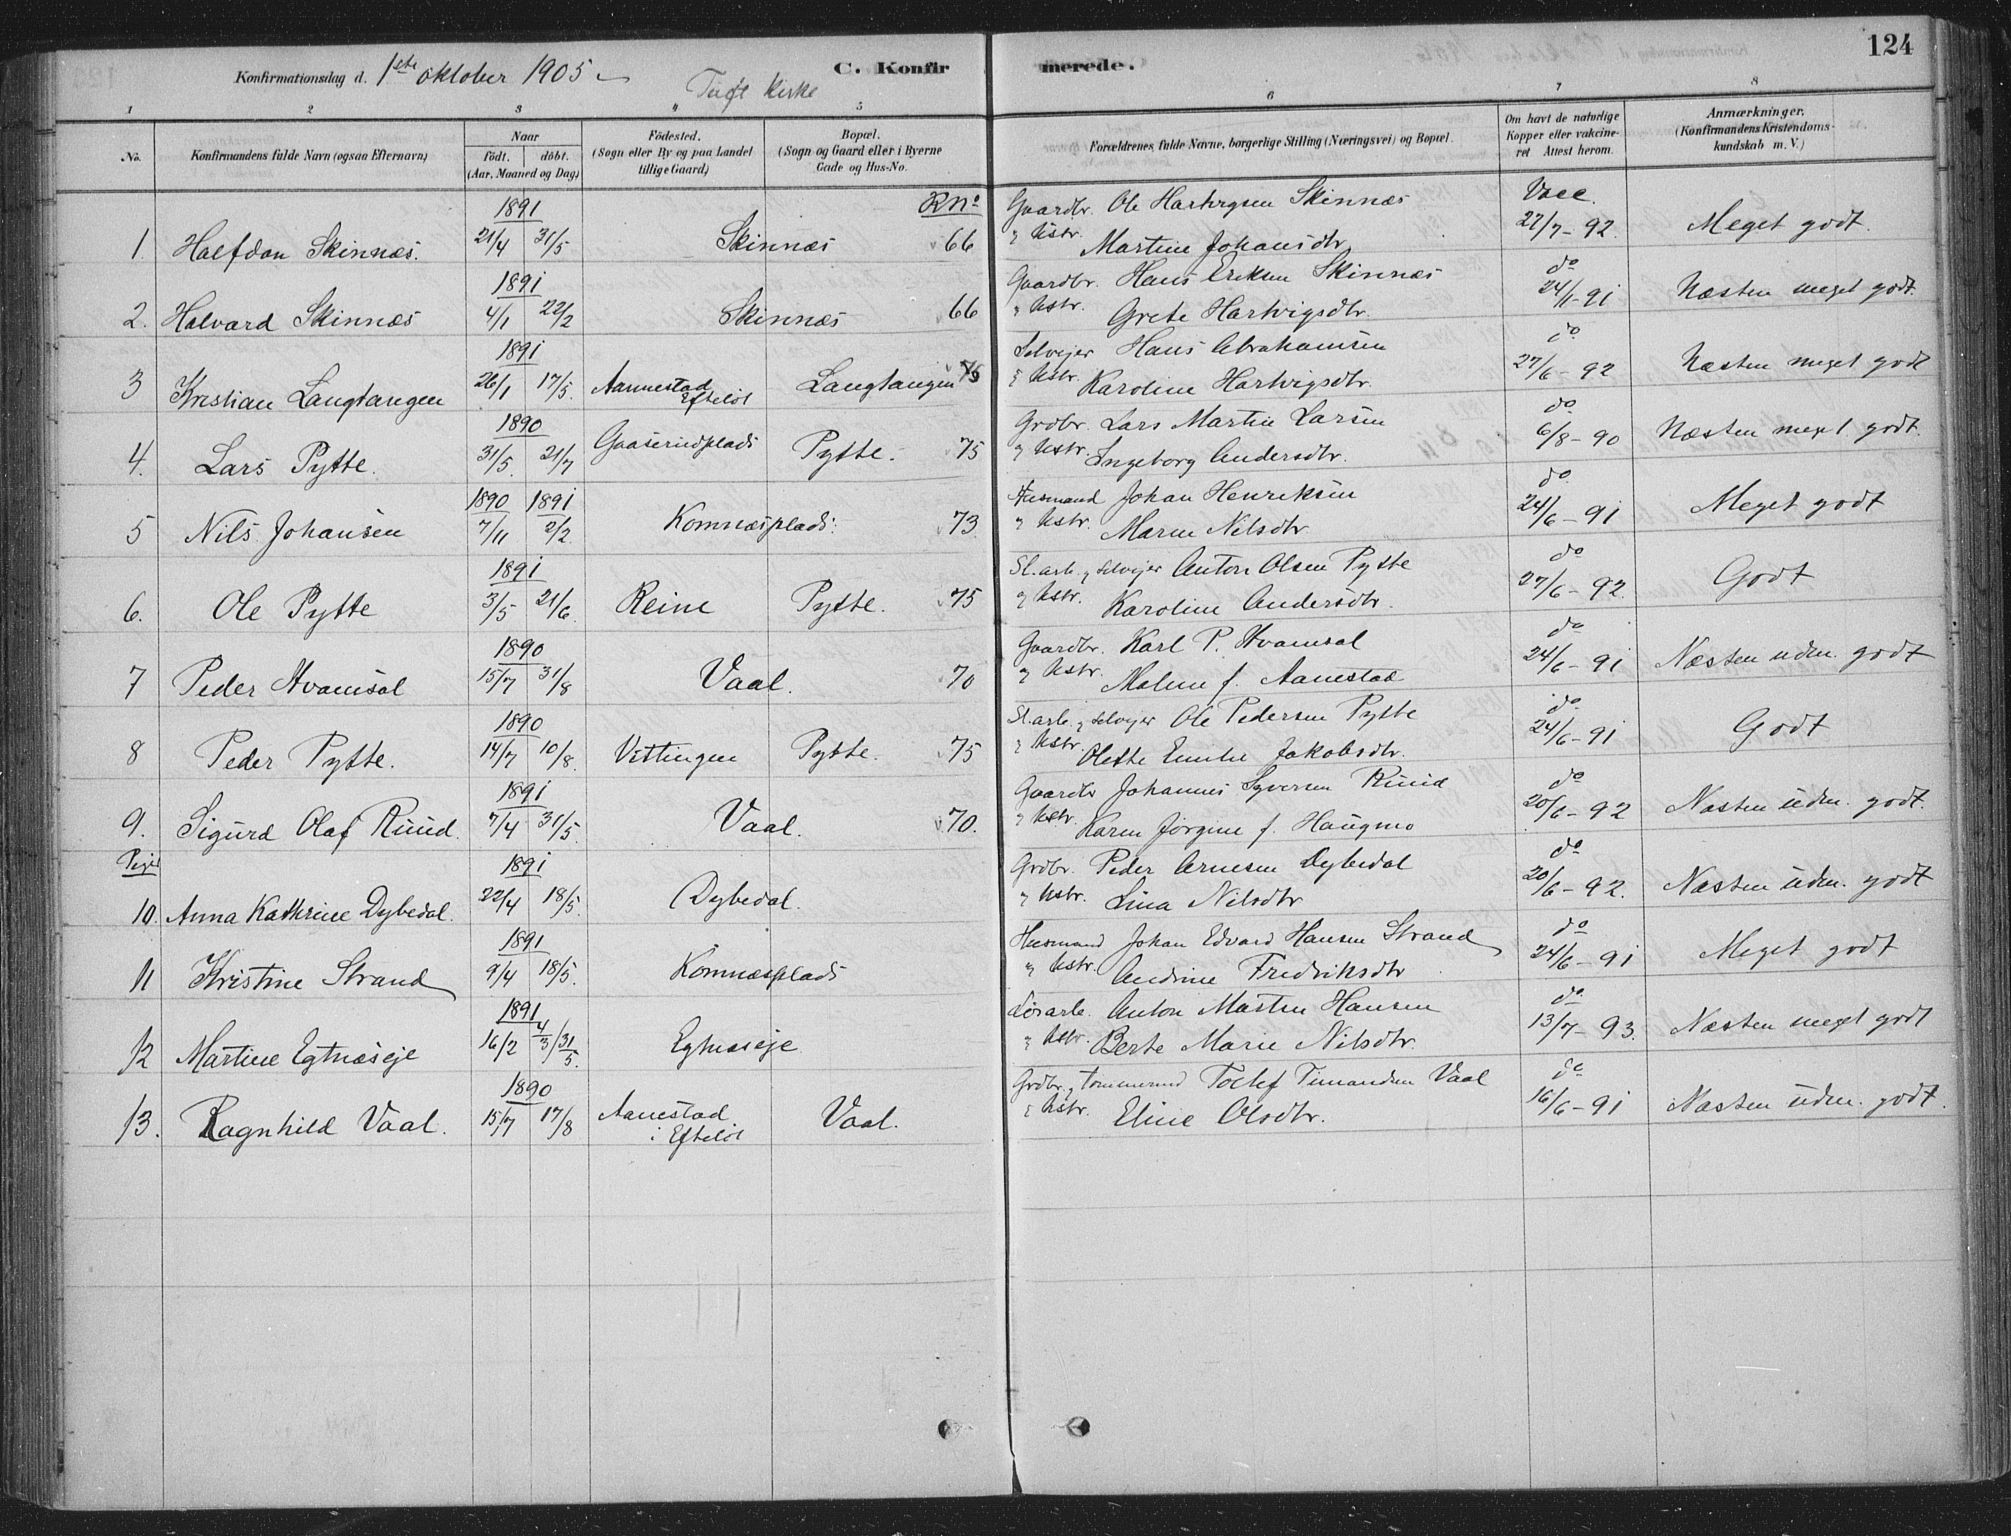 124
Konfirmationsdag d. 1ste oktober 1905
C. Konfirmerede.
Tuft Kirke
1 2 3 " 5 6 7 8
No.
Konfirmandens fulde Navn (ogsaa Efternavn)
Naar
födt. döbt.
(Aar, Maaned og Dag)
Födested.
(Sogn eller By og paa Landet tillige Gaard)
Bopæl.
(Sogn og Gaard eller i Byerne Gade og Hus-No.
Forældrenes fulde Navne, borgerlige Stilling (Næringsvei) og Bopæl.
Om havt de naturlige Kopper eller vakcineret Attest herom.
Anmærkninger.
(Konfirmandens Kristendomskundskab m. V.)
RNo
1. Halfdan Skinnæs. 1891 21/4 31/5 Skinnæs 66 Gaardbr. Ole Hartvigsen Skinnæs Vacc.
Hstr. Martine Johansdtr. 27/7-92. Meget godt.
2. Halvard Skinnæs 1891 4/1 22/2 Skinnæs 66 Gaardbr. Hans Eriksen Skinnæs do
Hstr. Grete Hartvigsdtr. 24/1-91 Næsten meget godt.
3 Kristian Langtangen 1891 26/1 17/5. Aannestad Efteløt Langtangen Selvejer Hans Abrahamsen do
Hstr. Karoline Hartvigsdtr. 27/6-92 Næsten meget godt
4. Lars Pytte. 1890 31/5. 21/7 Gaaserudplads Pytte. 75 Grdbr. Lars Martin Larsen do
Hstr. Ingeborg Andersdtr. 6/8-90 Næsten meget godt.
5 Nils Johansen 1890 1891 7/11 2/2 Komnæsplads. 73. Husmand Johan Henriksen do
Hstr. Maren Nilsdtr. 24/6-91 Meget godt
6. Ole Pytte 1891 3/5 21/6. Reine Pytte. 75 Sl.arb. og selvejer Anton Olsen Pytte do
Hstr. Karoline Andersdtr. 27/6-92. Godt
7 Peder Hvamsal 1890 15/7 31/8 Vaal. 70 Gaardbr. Karl P. Hvamsal do
Hstr. Maline f. Aanestad 24/6-91 Næsten udm. godt
8 Peder Pytte. 1890 14/7 10/8. Vittingen Pytte. 75 Sl.arb. og selvejer Ole Pedersen Pytte do
Hstr. Olette Emilie Jakobsdtr. 24/6-91 Godt
9. Sigurd Olaf Ruud. 1891 7/4 31/5. Vaal. 70. Gaardbr Johannes Syversen Ruud do
Hstr. Karen Jørgine f. Haugmo 20/6-92 Næsten udm. godt.
Piger
10. Anna Kathrine Dybedal. 1891 22/4 18/5. Dybedal. Grdbr. Peder Arnesen Dybedal do
Hstr. Lina Nilsdtr 20/6-92. Næsten udm. godt
11 Kristine Strand 1891 9/4 18/5. Komnæsplads Husmand Johan Edvard Hansen Strand do
Hstr. Andrine Fredriksdtr 24/6-91 Meget godt
12 Martine Egtnæseje 1891 16/2 4/3 31/5. Egtnæseje Løsarb. Anton Martin Hansen do
Hstr. Berte Marie Nilsdtr. 13/7-93. Næsten meget godt
13. Ragnhild Vaal. 1890 15/7 17/8 Aanestad i Efteløt Vaal. Grdbr. og tømmermd Tollef Timandsen Vaal do
Hstr. Eline Olsdtr. 16/6-91 Næsten udm. godt.